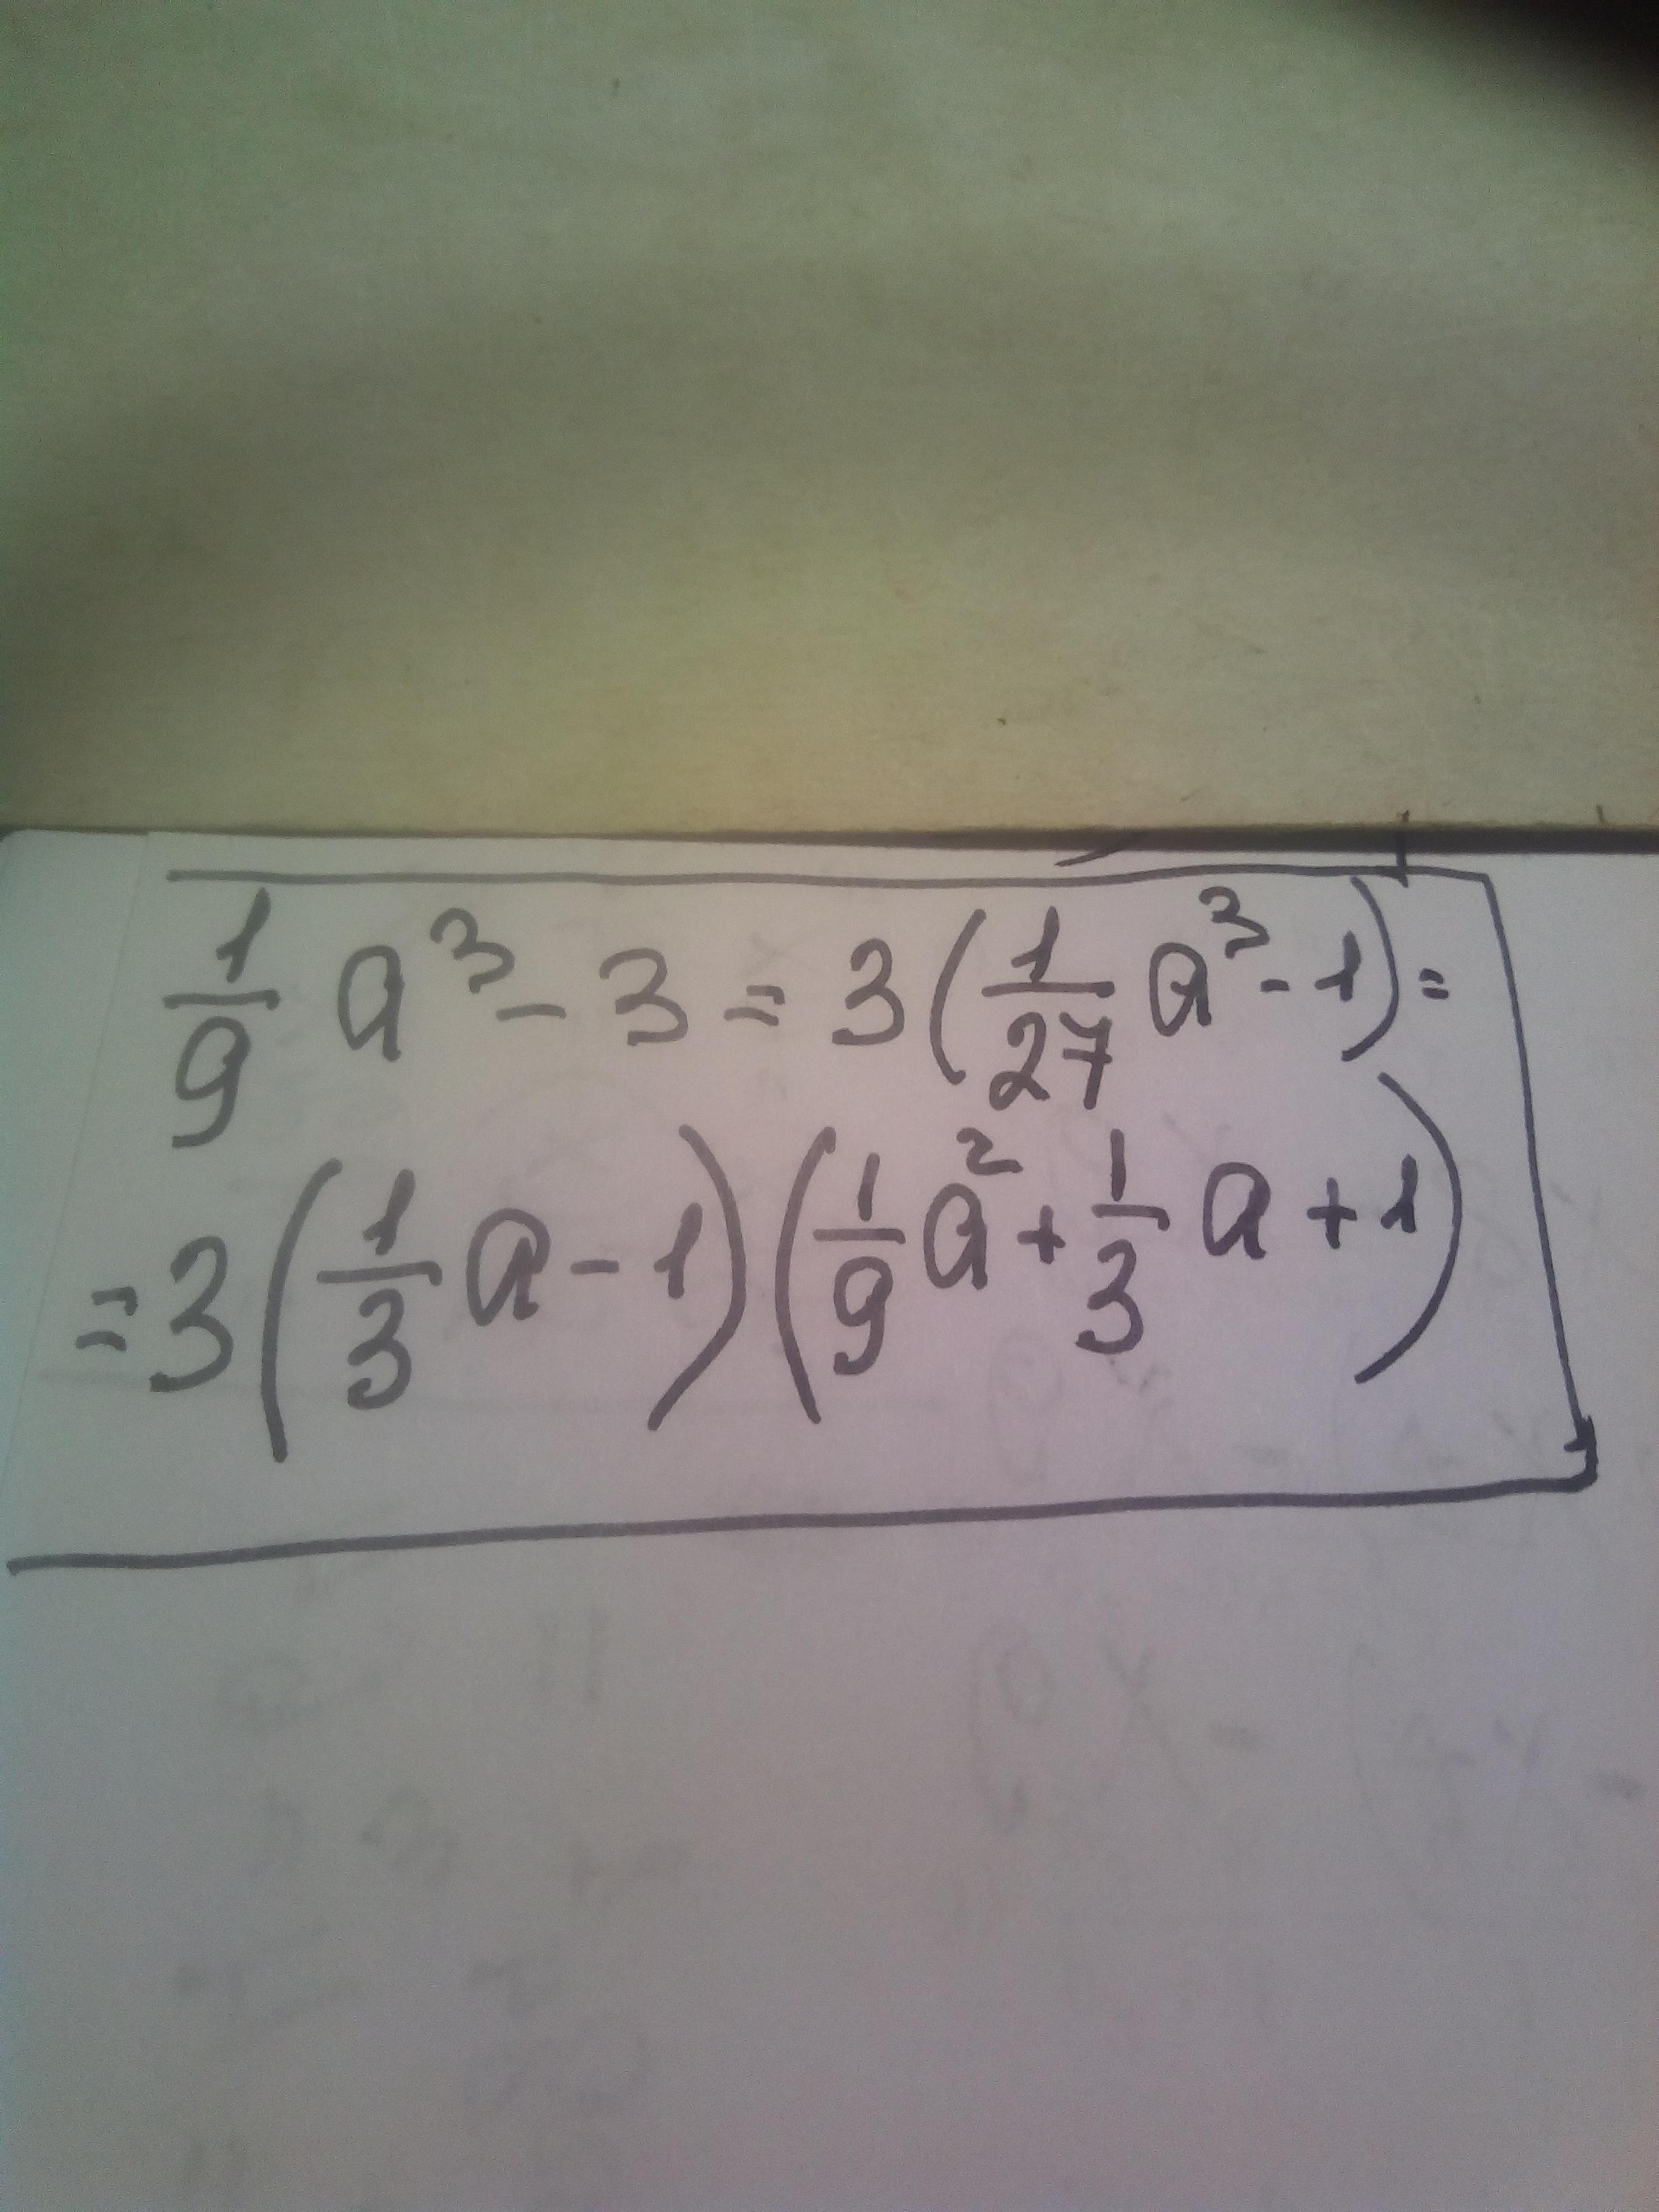 1/9 a³ - 3 = 3(1/27 a³ - 1) =
= 3(1/3 a - 1)(1/9 a² + 1/3 a + 1)